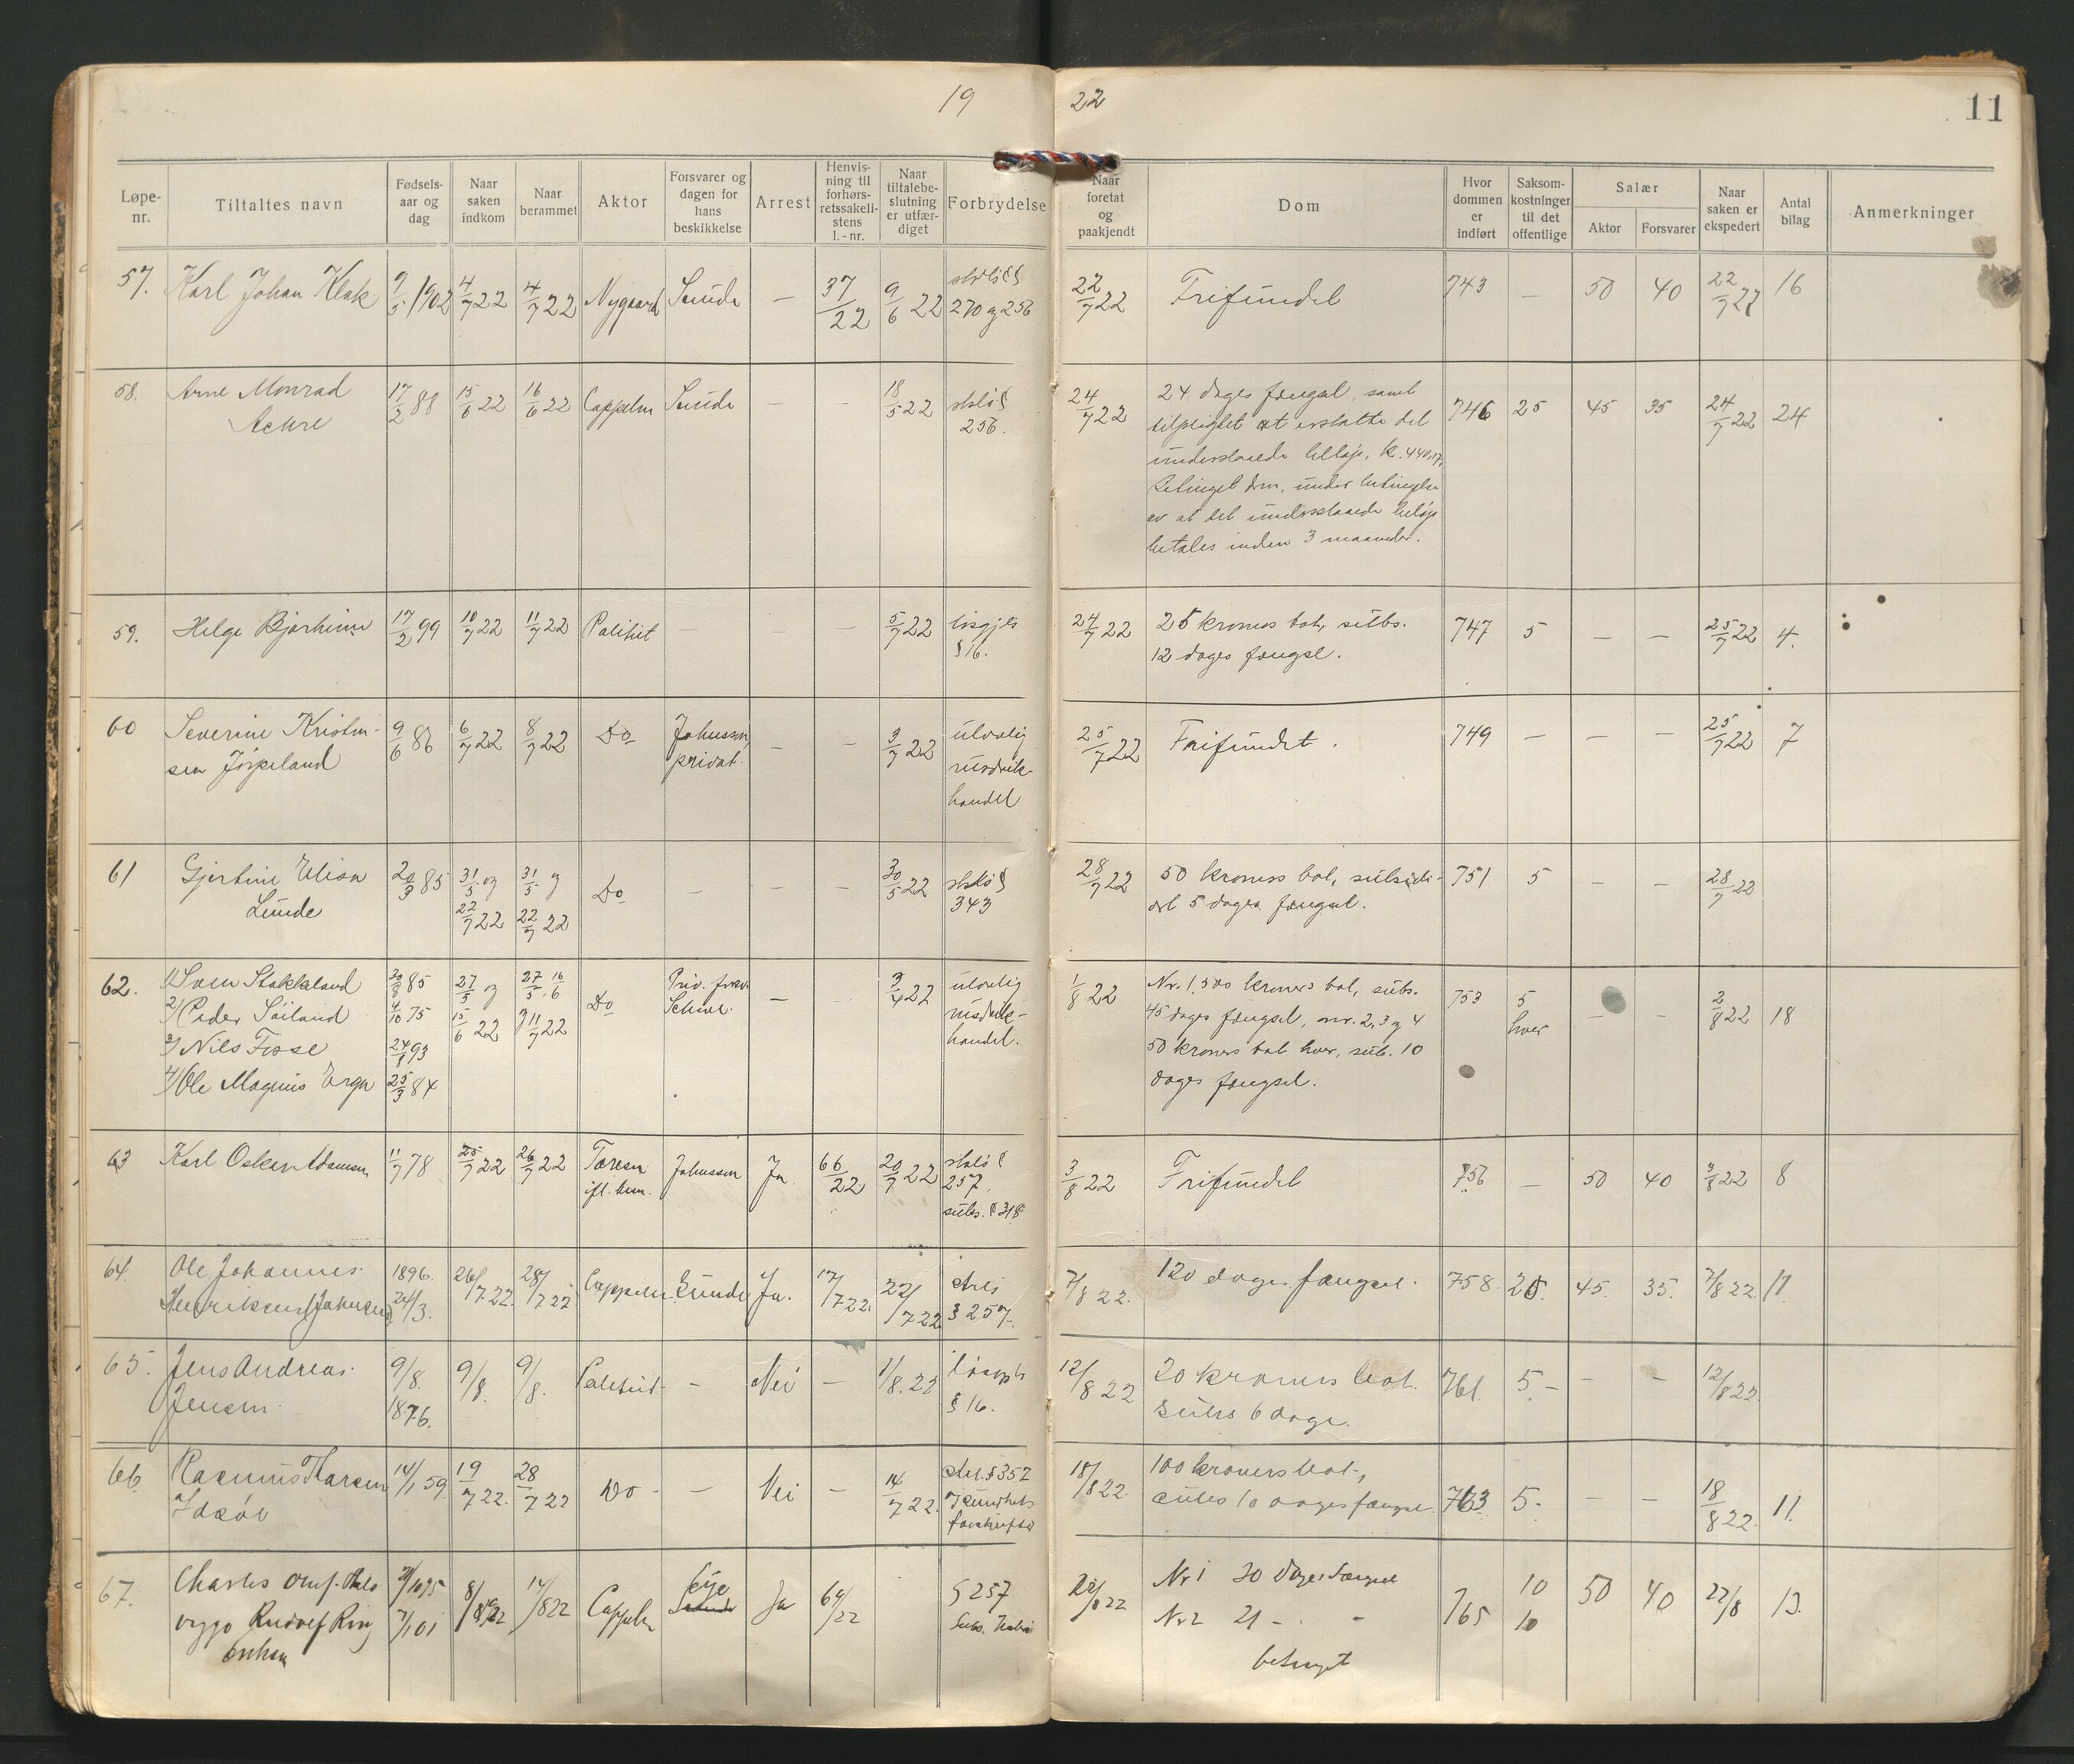 19 22
11
Løpe-nr.
Tiltaltes navn
Fødsels-aar og dag
Naar saken indkom
Naar berammet
Aktor
Forsvarer og dagen for hans beskikkelse
Arrest
Henvis-ning til forhørs-retssakeli-stens l.-nr.
Naar tiltalebe-slutning er utfær-diget
Forbrydelse
Naar foretat og paakjendt
Dom
Hvor dommen er indført
Saksom-kostninger til det offentlige
Salær
Aktor
Forsvarer
Naar saken er ekspedert
Antal bilag
Anmerkninger
57. Karl Johan Klak 9/5 1902 4/7 22 4/7 22 Nygaard Sunde — 37/22 9/6 22 strls §§ 270 og 256
22/7 22 Frifundet 743 — 50 40 22/7 22 16
58. Arne Monrad 17/2 88 15/6 22 16/6 22 Cappelen Sunde — — 18/5 22 strls § 256.
24/7 22 24 dages fængsel, samt 746 25 45 35 24/7 22 24
tilpligtet at erstatte det
underslaaede beløp, kr. 440,17,
Betinget dom, under betingelse
av at det underslaaede beløp
betales inden 3 maaneder.
59. Helge Bjørheim 17/2 99 10/7 22 11/7 22 Politiet — — — 5/7 22 løsgjls § 16.
24/7 22 25 kroners bot, subs. 747 5 — — 25/7 22 4.
12 dages fængsel.
60 Severin Kristen- 9/6 86 6/7 22 8/7 22 Do Johnsson, privat. — — 3/7 22 ulovlig rusdrik-handel
sen Jørpeland
25/7 22 Frifundet. 749 — — — 25/7 22 7
61 Gjertine Elisa 20/3 85 31/5 og 31/5 og Do — — — 30/5 22 strls § 343
Lunde 22/7 22 22/7 22
28/7 22 50 kroners bot, subsidi- 751 5 — — 28/7 22
ært 5 dages fængsel.
62. 1) Sven Stokkeland 20/8 85 27/5 og 27/5, 16/6 Do Priv. forsv. — 3/4 22 ulovlig rusdrik-handel.
2/ Peder Söiland 4/10 75 15/6 22 11/7 22
3/ Nils Fosse 24/8 93
4/ Ole Magnus Erga 25/3 84
1/8 22 Nr. 1, 500 kroners bot, subs. 753 5 hver — — 2/8 22 18
45 dages fængsel, nr. 2, 3 og 4
50 kroners bot hver, sub. 10
dages fængsel.
63 Karl Oskar Adamsen 11/7 78 25/7 22 26/7 22 Johnsson Ja 66/22 20/7 22 strls § 257, subs. § 318
3/8 22 Frifundet 756 — 50 40 3/8 22 8
64. Ole Johannes 1896. 26/7 22. 28/7 22 Cappelen Sunde Ja. 17/7 22. 22/7 22 § 257.
Henriksen (Johnsen) 24/3.
7/8 22. 120 dages fængsel. 758. 25. 45. 35. 7/8 22. 11.
65. Jens Andreas 9/8. 9/8. 9/8. Politiet — Nei — 1/8. 22 § 16.
Jensen. 1876.
12/8 22 20 kroners bot. 761. 5.- — — 12/8 22.
subs 6 dage.
66. Rasmus Thorsen 14/1 59. 19/7 22. 28/7 22 Do — — Nei — 14/7 22. strl. § 357
Idsøe
18/8 22. 100 kroners bot, 763 5.- — — 18/8 22. 11.
subs 10 dages fængsel.
67. Charles 8/8 22 14/8 22 Cappelen Ja 64/22 § 257
7/1 01
Viggo Rudolf Ring
22/8 22 Nr 1 30 dages fængsel 765 10 50 40 22/8 13.
Nr 2 21 - - 10
betinget